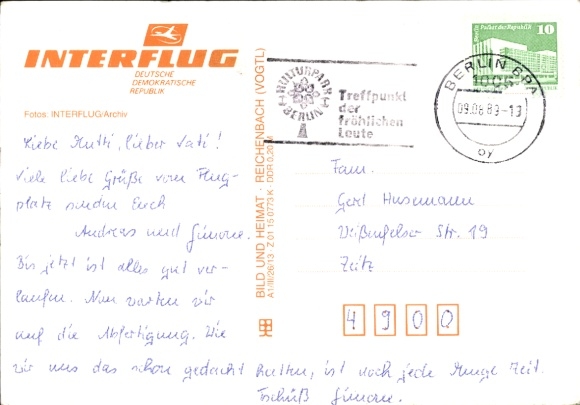 INTERFLUG
DEUTSCHE
DEMOKRATISCHE
REPUBLIK
Fotos: INTERFLUG/Archiv
Liebe Mutti, lieber Vati!
Viele liebe Grüße vom Flug-
platz senden Euch
Andreas und Simone.
Bis jetzt ist alles gut ver-
laufen. Nun warten wir
auf die Abfertigung. Wie
wir uns das schon gedacht hatten, ist noch jede Menge Zeit.
Tschüß Simone.
BILD UND HEIMAT · REICHENBACH (VOGTL)
A1/III/26/13 Z 01 15 0773 K · DDR 0,20 M
KULTURPARK
BERLIN
Treffpunkt
der
fröhlichen
Leute
BERLIN BPA
1085
09.06.89-13
oy
Palast der Republik
10
DDR
Fam.
Gerd Husemann
Weißenfelser Str. 19
Zeitz
4900